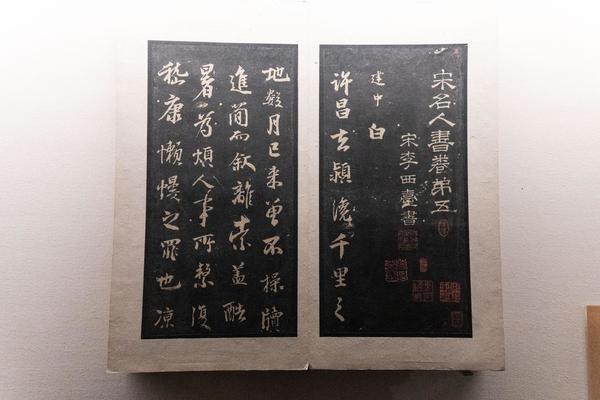 宋名人書卷第五
宋李西臺書
建中白
許昌去潁瀍千里之
地數月已來曾不操牘
進簡而敘離索蓋酷
暑為煩人事所繫復
嵇康懶慢之罪也凉